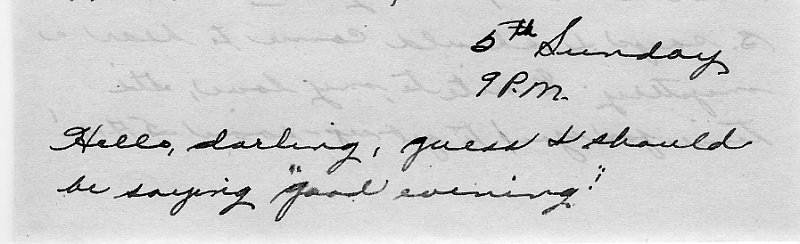 5th Sunday
9 P.M.
Hello, darling, guess I should
be saying "good evening"!